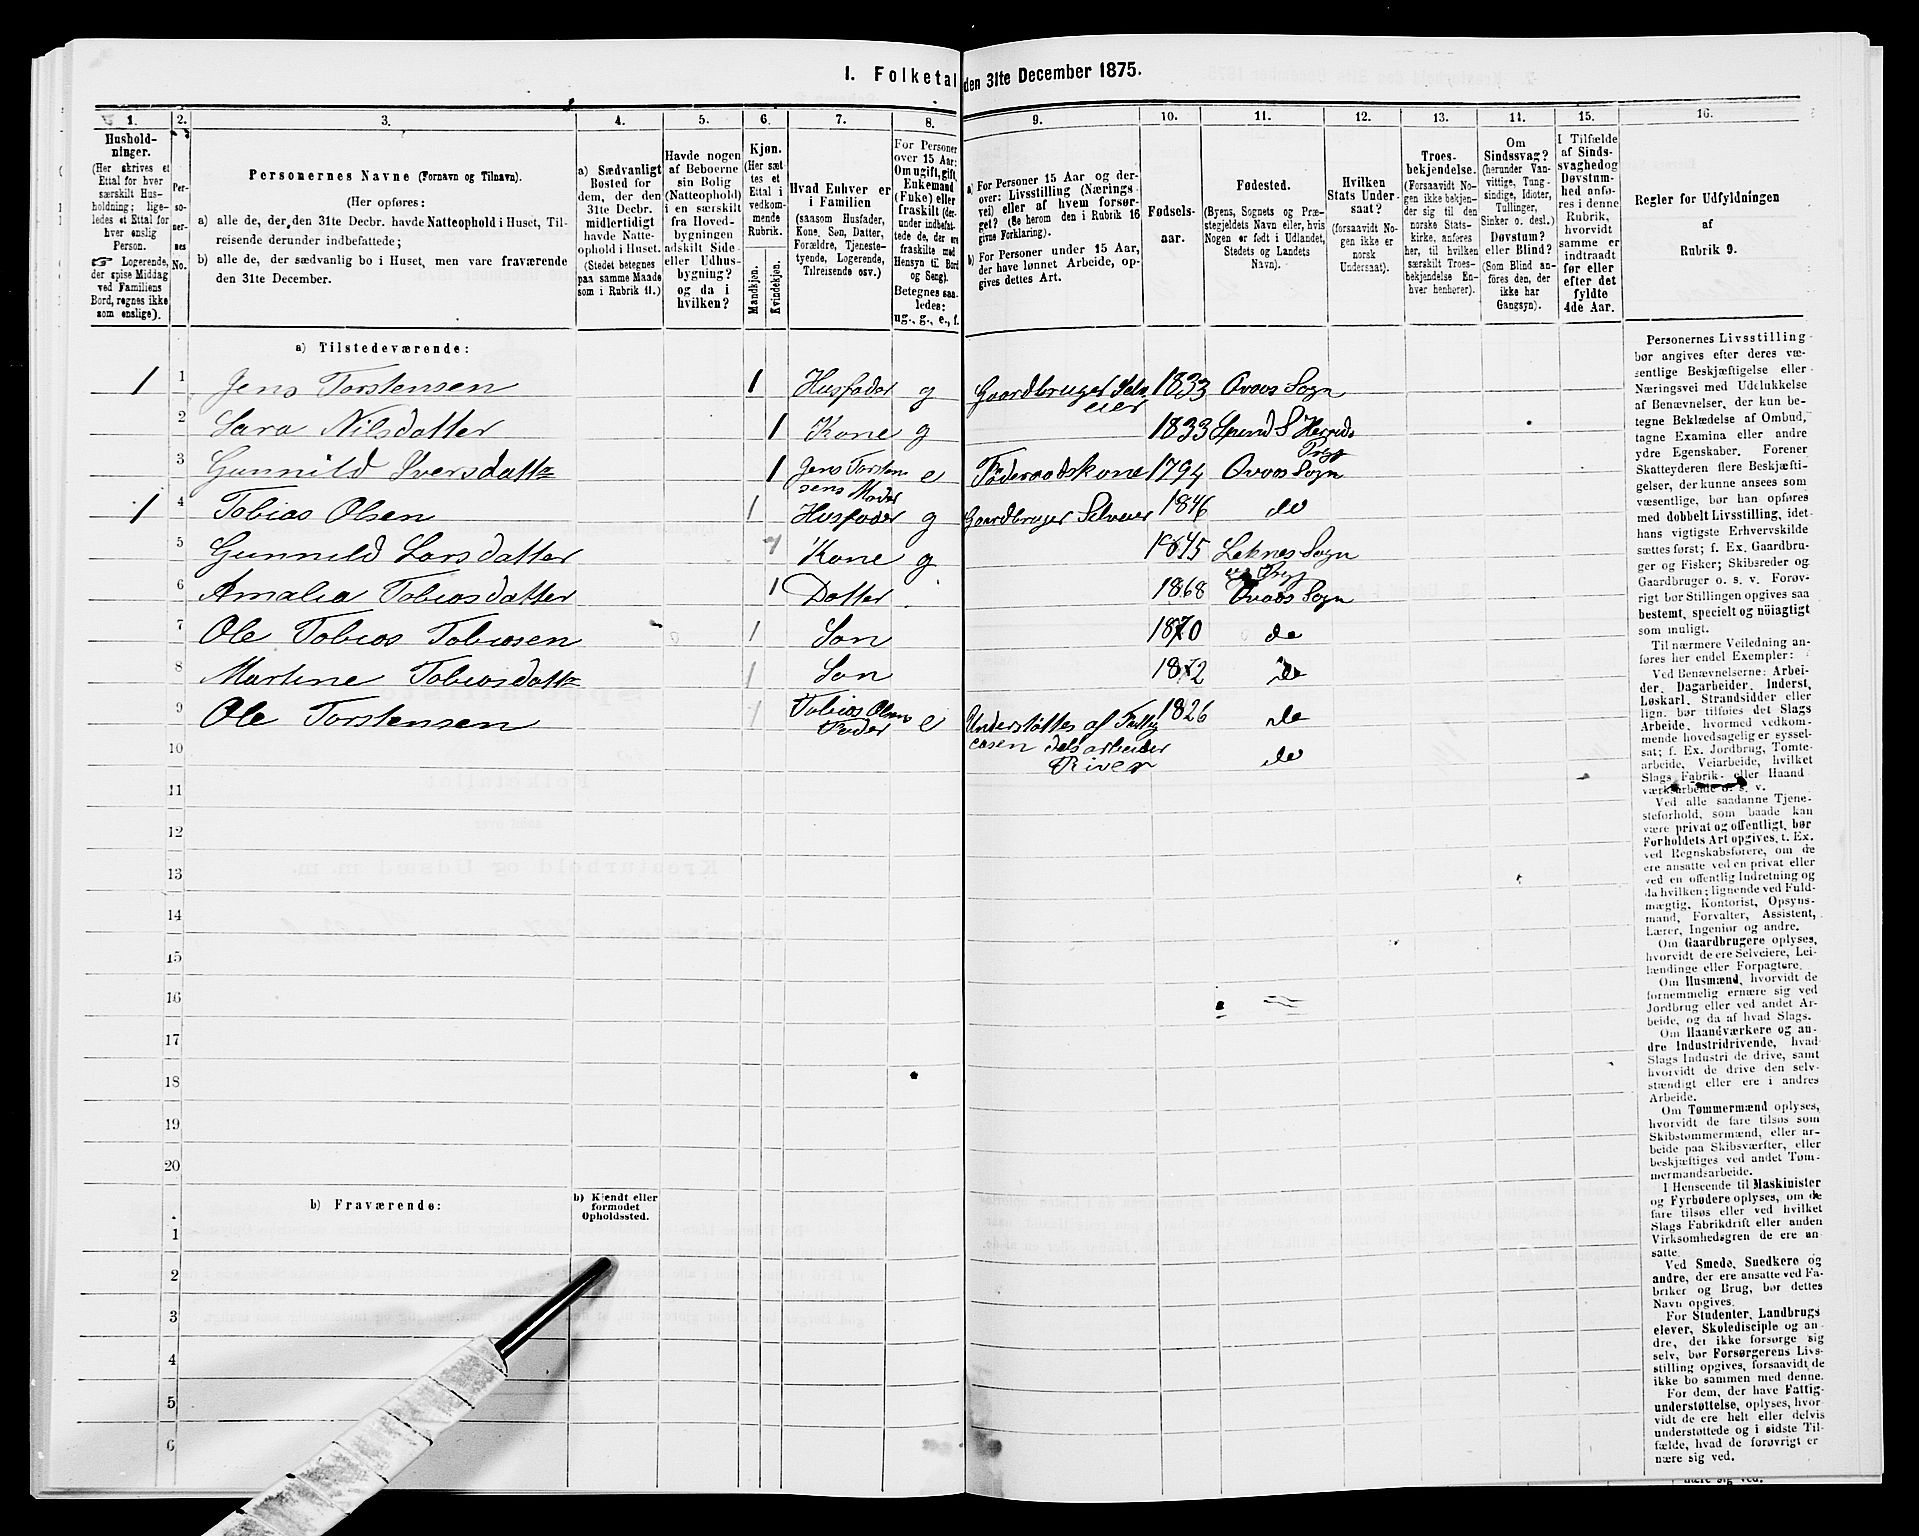 I. Folketal den 31te December 1875.
1. 2. 3. 4. 5. 6. 7. 8. 9. 10. 11. 12. 13. 14. 15. 16.
Hushold-
ninger.
(Her skrives et
Ettal for hver
særskilt Hus-
holdning; lige-
ledes et Ettal for
hver enslig
Person.
☞ Logerende,
der spise Middag
ved Familiens
Bord, regnes ikke
som enslige).
Per-
so-
ner-
nes
No.
Personernes Navne (Fornavn og Tilnavn).
(Her opføres:
a) alle de, der den 31te Decbr. havde Natteophold i Huset, Til-
reisende derunder indbefattede;
b) alle de, der sædvanlig bo i Huset, men vare fraværende
den 31te December.
a) Sædvanligt
Bosted for
dem, der den
31te Decbr.
midlertidigt
havde Natte-
ophold i Huset.
(Stedet betegnes
paa samme Maade
som i Rubrik 11.)
Havde nogen
af Beboerne
sin Bolig
(Natteophold)
i en særskilt
fra Hoved-
bygningen
adskilt Side-
eller Udhus-
bygning?
og da i
hvilken?
Kjøn.
(Her sæt-
tes et
Ettal i
vedkom-
mende
Rubrik.
Mandkjøn.
Kvindekjøn.
Hvad Enhver er
i Familien
(saasom Husfader,
Kone, Søn, Datter,
Forældre, Tjeneste-
tyende, Logerende,
Tilreisende osv.)
For Personer
over 15 Aar:
Om ugift, gift,
Enkemand
(Enke) eller
fraskilt (der-
under indbefat-
tede de, der ere
fraskilte med
Hensyn til Bord
og Seng).
Betegnes saa-
ledes:
ug., g., e., f.
a) For Personer 15 Aar og der-
over: Livsstilling (Nærings-
vei) eller af hvem forsør-
get? (Se herom den i Rubrik 16
givne Forklaring).
b) For Personer under 15 Aar,
der have lønnet Arbeide, op-
gives dettes Art.
Fødsels-
aar.
Fødested.
(Byens, Sognets og Præ-
stegjeldets Navn eller, hvis
Nogen er født i Udlandet,
Stedets og Landets
Navn).
Hvilken
Stats Under-
saat?
(forsaavidt No-
gen ikke er
norsk
Undersaat).
Troes-
bekjendelse.
(Forsaavidt No-
gen ikke bekjen-
der sig til den
norske Stats-
kirke, anføres
her, til hvilken
særskilt Troes-
bekjendelse En-
hver henhører).
Om
Sindssvag?
(herunder Van-
vittige, Tung-
sindige, Idioter,
Tullinger,
Sinker o. desl.)
Døvstum?
eller Blind?
(Som Blind an-
føres den, der
ikke har
Gangsyn).
I Tilfælde
af Sinds-
svaghedog
Døvstum-
hed anfø-
res i denne
Rubrik,
hvorvidt
samme er
indtraadt
før eller
efter det
fyldte
4de Aar.
Regler for Udfyldningen
af
Rubrik 9.
a) Tilstedeværende:
1 1 Jens Torstensen 1 Husfader g Gaardbruger Selv
eier 1833 Ovoos Sogn
2 Sara Nilsdatter 1 Kone g 1833 Lund S Herreds
Pregj
3 Gunnild Iversdatter 1 Jens Torsten
sens Moder e Føderaadskone 1794 Ovoos Sogn
1 4 Tobias Olsen 1 Husfader g Gaardbruger Selveier 1846 do
5 Gunnild Larsdatter 1 Kone g 1845 Leknes Sogn
og Pregj
6 Amalia Tobiasdatter 1 Datter 1868 Ovoos Sogn
7 Ole Tobias Tobiasen 1 Søn 1870 do
8 Martine Tobiasdatter 1 Søn 1872 do
9 Ole Torstensen 1 Tobias Olsens
Fader e Understøttes af Fattig
casen dels arbeider 1826 do
10 do
11
12
13
14
15
16
17
18
19
20
b) Fraværende:
b) Kjendt eller
formodet
Opholdssted.
1
2
3
4
5
6
Personernes Livsstilling
bør angives efter deres væ-
sentlige Beskjæftigelse eller
Næringsvei med Udelukkelse
af Benævnelser, der kun be-
tegne Beklædelse af Ombud,
tagne Examina eller andre
ydre Egenskaber. Forener
Skatteyderen flere Beskjæfti-
gelser, der kunne ansees som
væsentlige, bør han opføres
med dobbelt Livsstilling, idet
hans vigtigste Erhvervskilde
sættes først; f. Ex. Gaardbru-
ger og Fisker; Skibsreder og
Gaardbruger o. s. v. Forøv-
rigt bør Stillingen opgives saa
bestemt, specielt og nöiagtigt
som muligt.
Til nærmere Veiledning an-
føres her endel Exempler:
Ved Benævnelserne: Arbei-
der, Dagarbeider, Inderst,
Løskarl, Strandsidder eller
lign. bør tilføies det Slags
Arbeide, hvormed vedkom-
mende hovedsagelig er syssel-
sat; f. Ex. Jordbrug, Tomte-
arbeide, Veiarbeide, hvilket
Slags Fabrik- eller Haand-
værksarbeide o. s. v.
Ved alle saadanne Tjene-
steforhold, som baade kan
være privat og offentligt, bør
Forholdets Art opgives, t. Ex.
ved Regnskabsførere, om de
ere ansatte ved en privat eller
ved en offentlig Indretning og
da hvilken; lignende ved Fuld-
mægtig, Kontorist, Opsyns-
mand, Forvalter, Assistent,
Lærer, Ingeniør og andre.
Om Gaardbrugere oplyses,
hvorvidt de ere Selveiere, Lei-
lændinge eller Forpagtere.
Om Husmænd, hvorvidt de
fornemmelig ernære sig ved
Jordbrug eller ved andet Ar-
beide, og da af hvad Slags.
Om Haandværkere og an-
dre Industridrivende, hvad
Slags Industri de drive, samt
hvorvidt de drive den selv-
stændigt eller ere i andres
Arbeide.
Om Tømmermænd oplyses,
hvorvidt de fare tilsøs som
Skibstømmermænd, eller ar-
beide paa Skibsværfter, eller
beskjæftiges ved andet Tøm-
mermandsarbeide.
I Henseende til Maskinister
og Fyrbødere oplyses, om de
fare tilsøs eller ved hvilket
Slags Fabrikdrift eller anden
Virksomhedsgren de ere an-
satte.
Ved Smede, Snedkere og
andre, der ere ansatte ved Fa-
briker og Brug, bør dettes
Navn opgives.
For Studenter, Landbrugs-
elever, Skoledisciple og an-
dre, der ikke forsørge sig
selv, bør Forsørgerens Livs-
stilling opgives, forsaavidt de
ikke bo sammen med denne.
For dem, der have Fattig-
understøttelse, oplyses, hvor-
vidt de ere helt eller delvis
understøttede og i sidste Til-
fælde, hvad de forøvrigt er
nære sig ved.
nære sig ved.